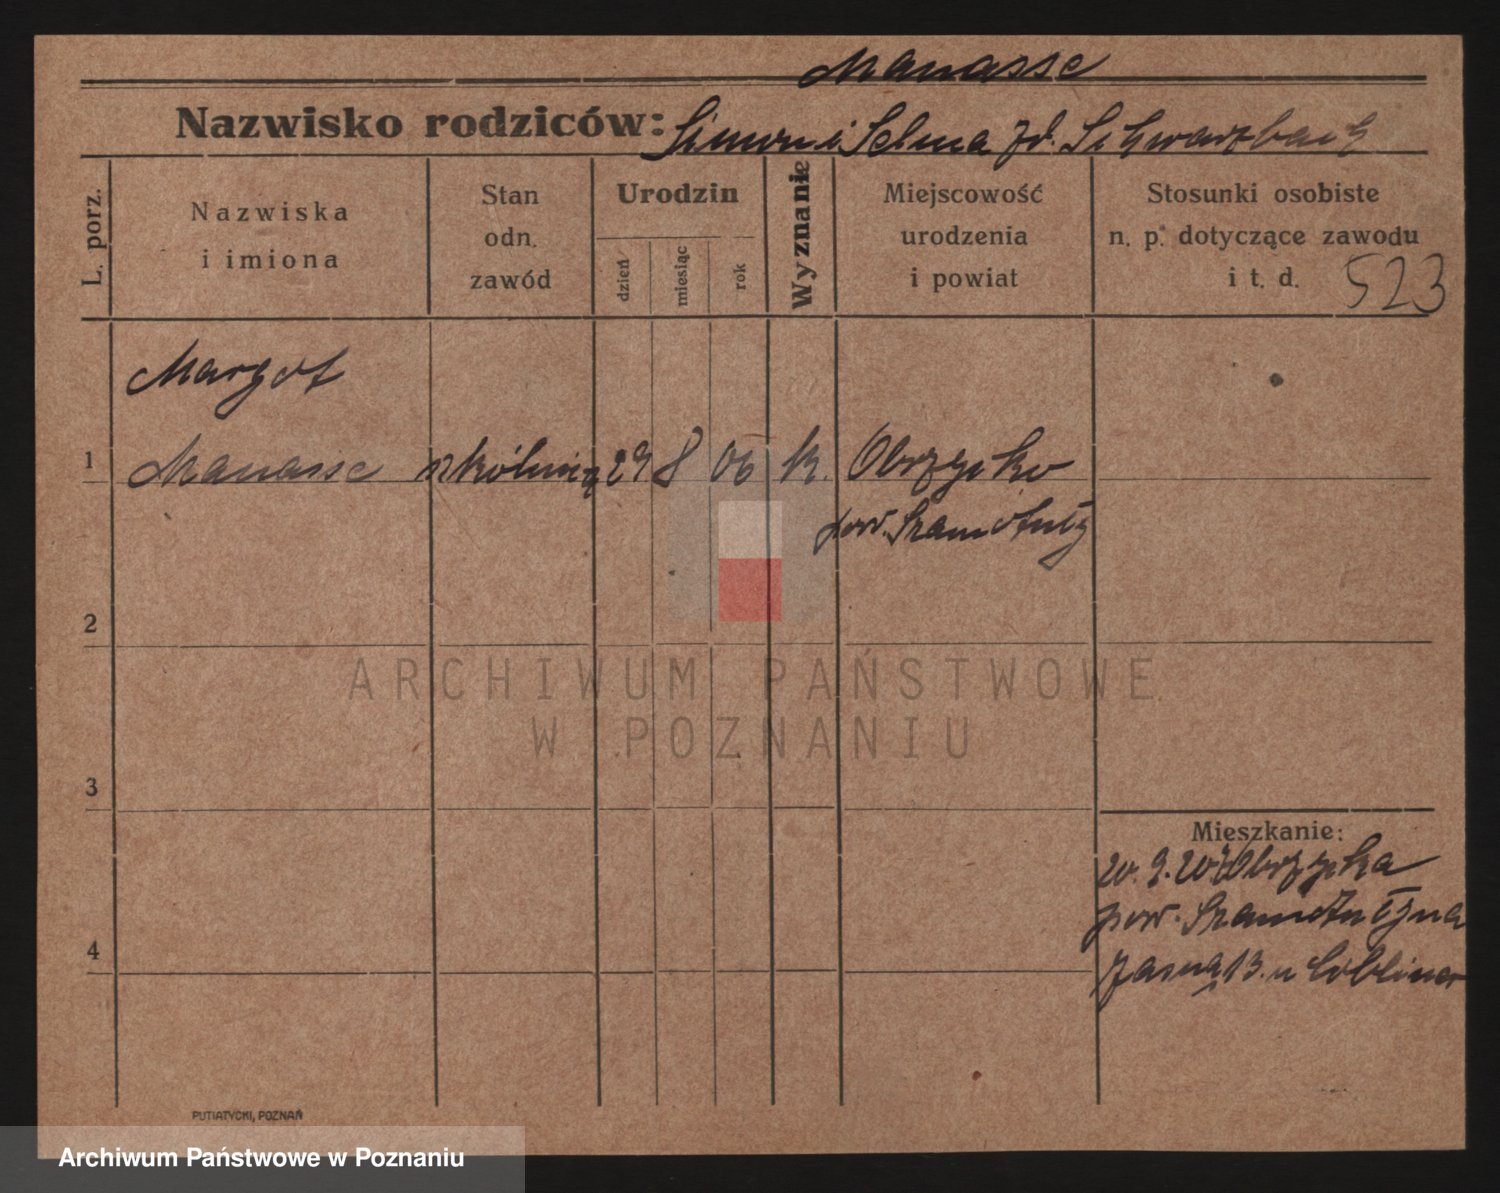 Manasse
Nazwisko rodziców: Simon i Selma zd. Schwarzbach
L. porz.
Nazwiska i imiona
Stan odn. zawód
Urodzin
dzień
miesiąc
rok
Wyznanie
Miejscowość urodzenia i powiat
Stosunki osobiste n. p. dotyczące zawodu i t. d.
523
Margot
1 Manasse 29 8 06 Obrzycko
pow. Szamotuły
2
3
4
Mieszkanie:
20. 9. 20 z Obrzycka
pow. Szamotuły na
Jasną 13. u
ARCHIWUM PAŃSTWOWE
W POZNANIU
PUTIATYCKI, POZNAŃ
Archiwum Państwowe w Poznaniu